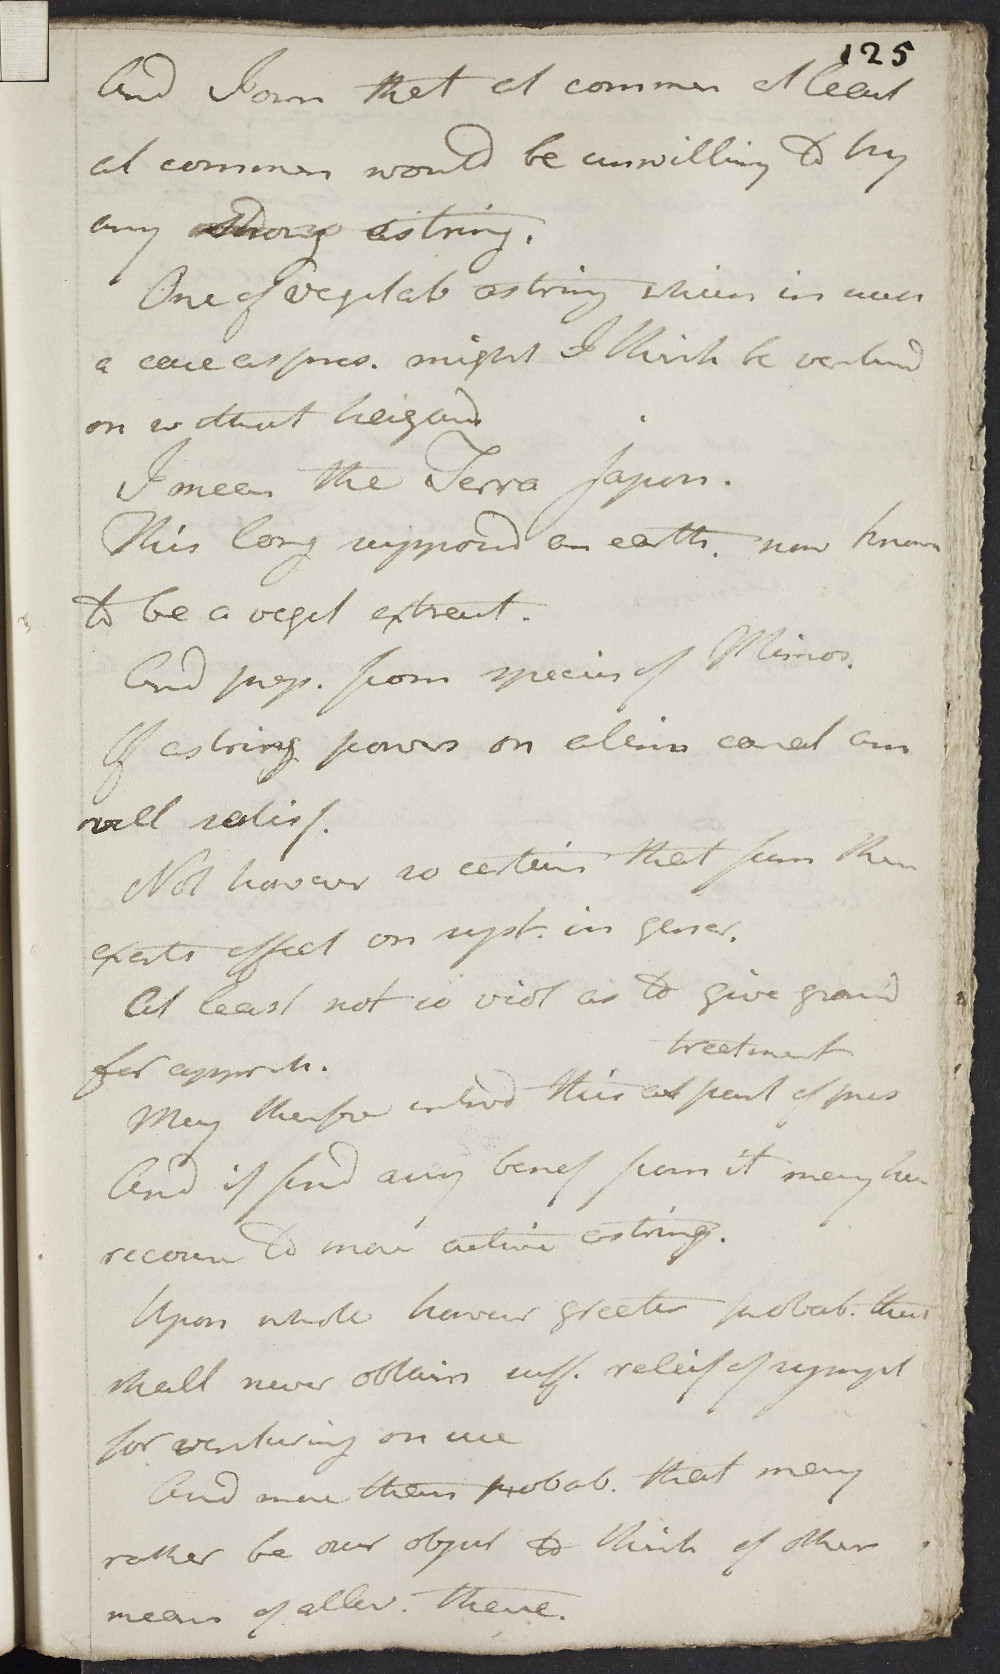 125
And I own that at commen at least
at commen would be unwilling to try
any strong astring.
One of vegetab astring which in such
a case as pres. might I think be ventur'd
on without hazard
I mean the Terra Japon.
This long suppos'd an earth. now known
to be a veget extract.
And prep. from species of Mimos.
Of astring powers on alim canal am
well satisf.
Not however so certain that from thence
exerts effect on syst. in gener.
At least not so viol as to give ground
for appreh.
treatment
May therefore introd this as part of pres
And if find any benef from it may have
recourse to more active astring.
Upon whole however greater probab. that
shall never obtain suff. releif of sympt
for venturing on use
And more than probab. that may
rather be our object to think of other
means of allev. these.